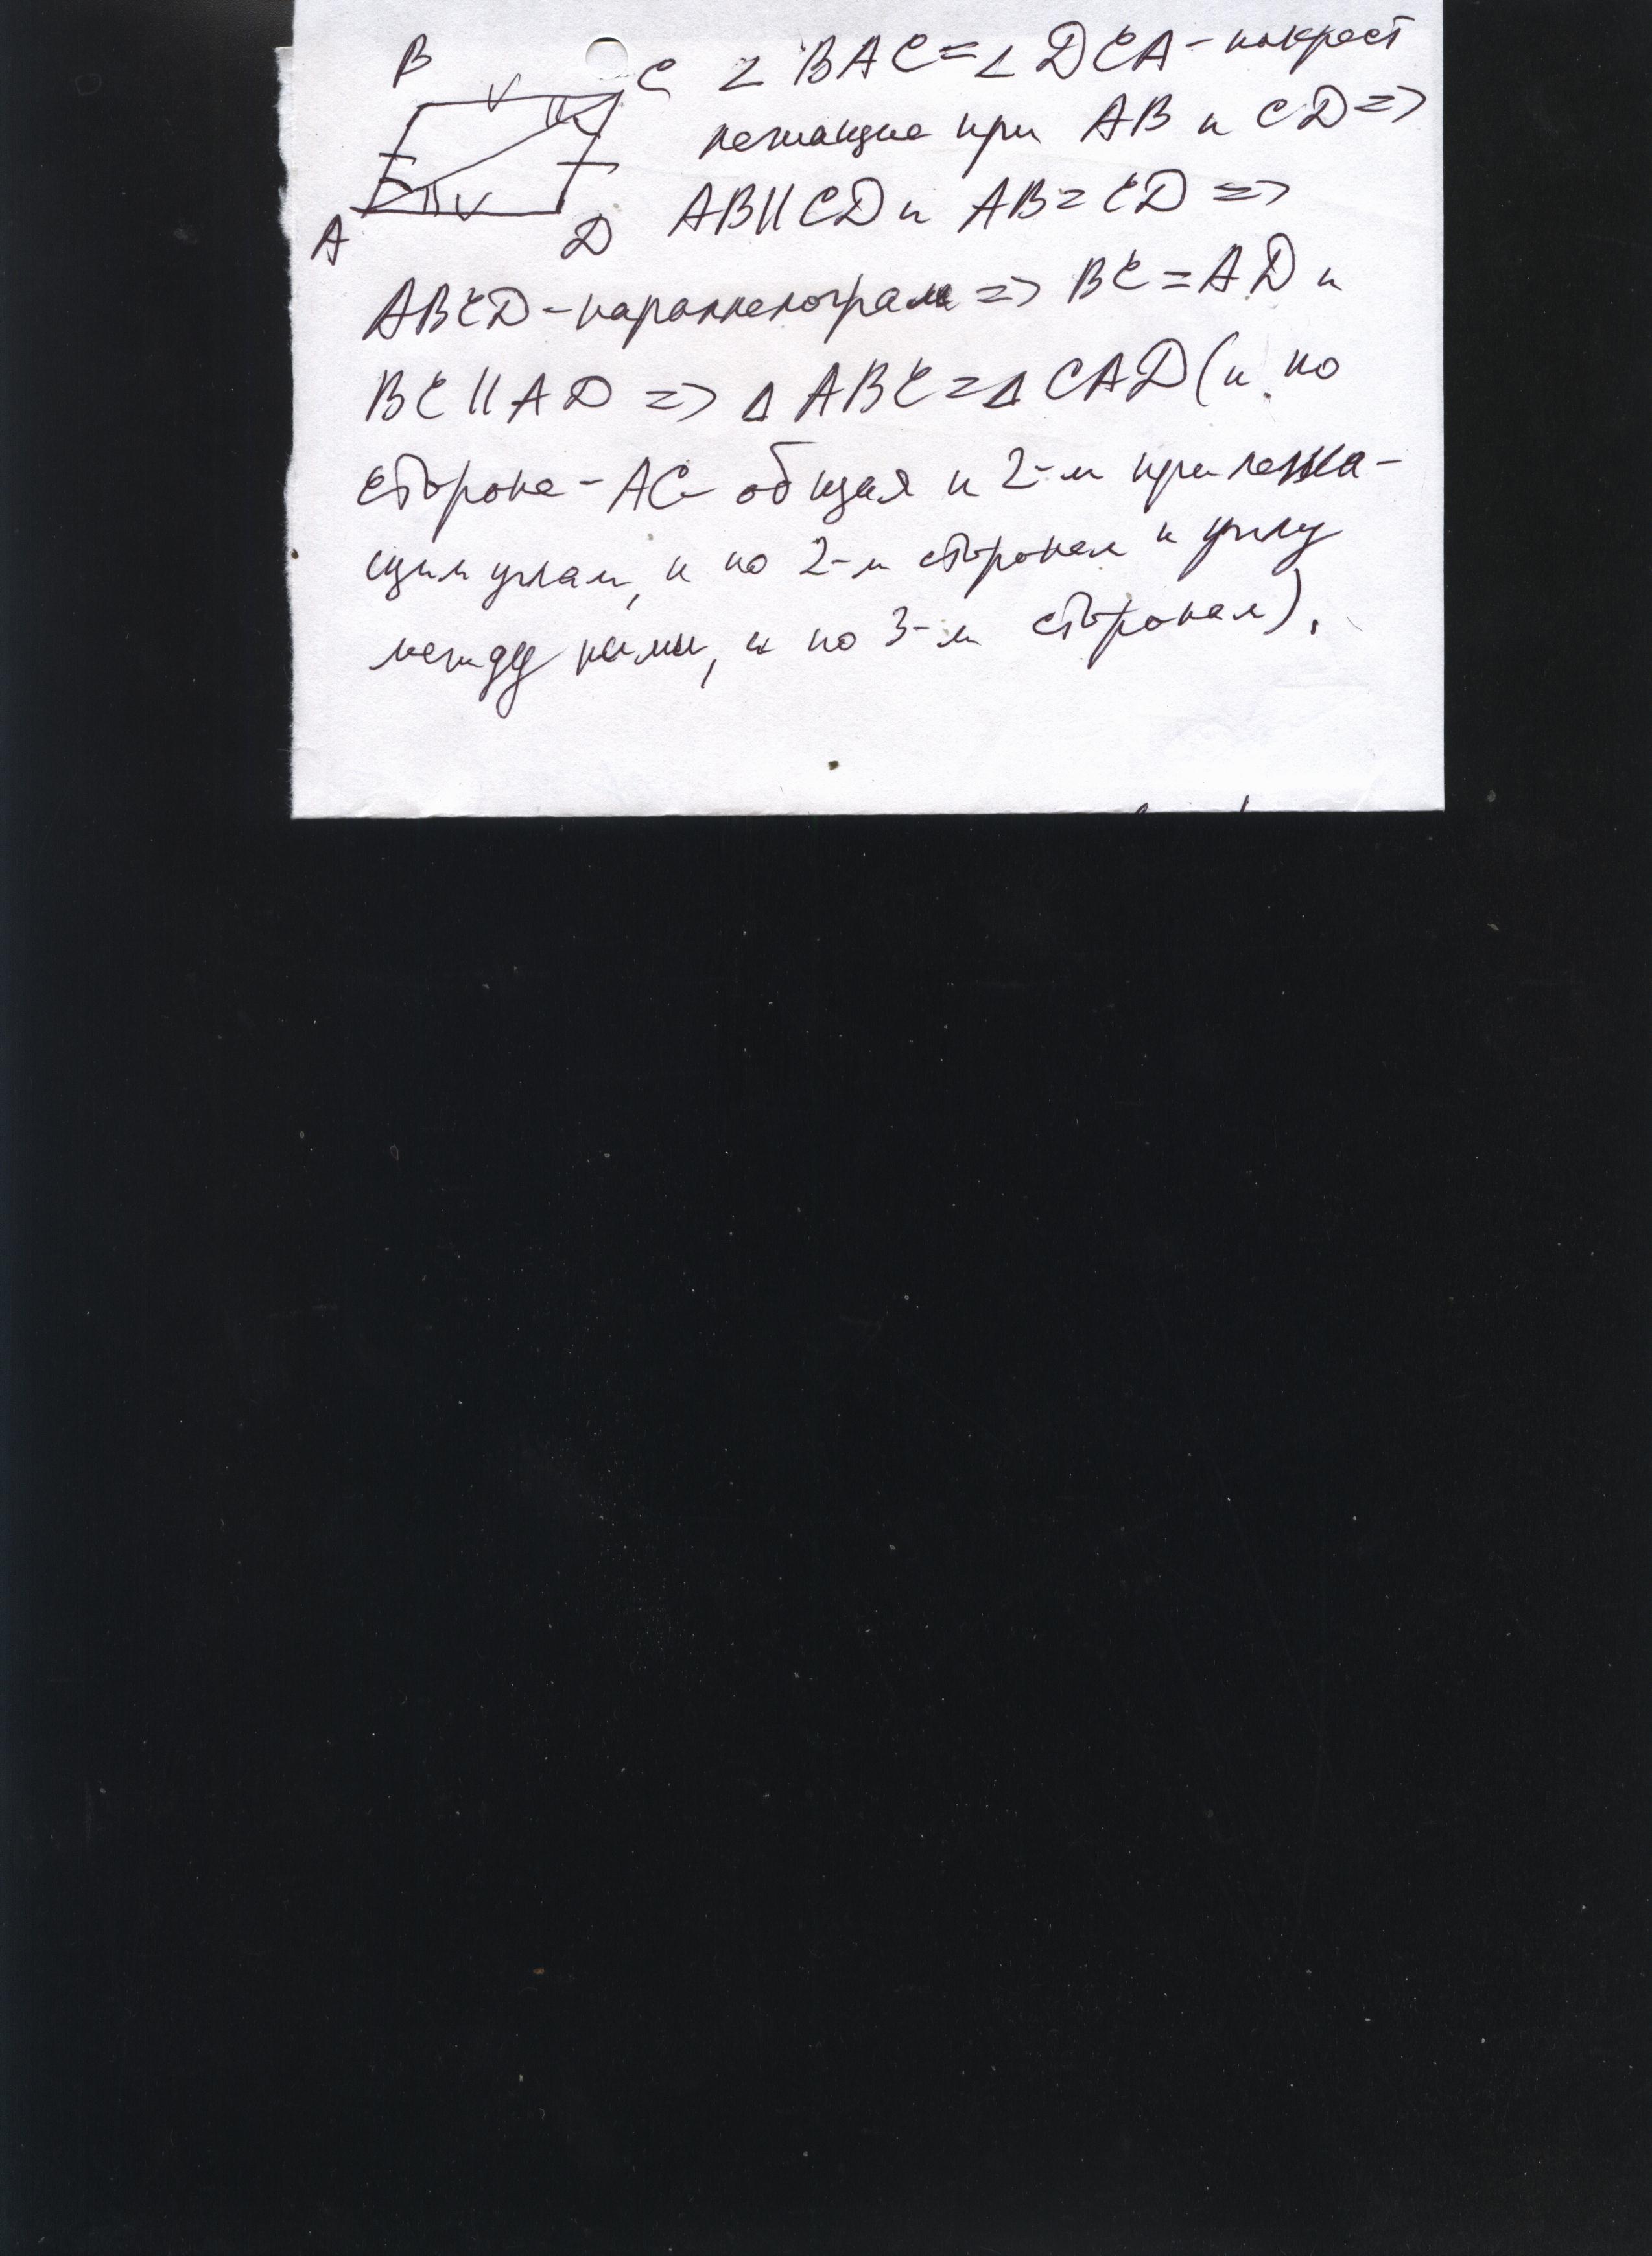 B
C ∠ BAC = ∠ DCA - накрест
лежащие при AB и CD =>
A
D AB || CD и AB = CD =>
ABCD - параллелограмм => BC = AD и
BC || AD => △ ABC = △ CAD (и по
стороне - AC - общая и 2-м прилежа-
щим углам, и по 2-м сторонам и углу
между ними, и по 3-м сторонам).